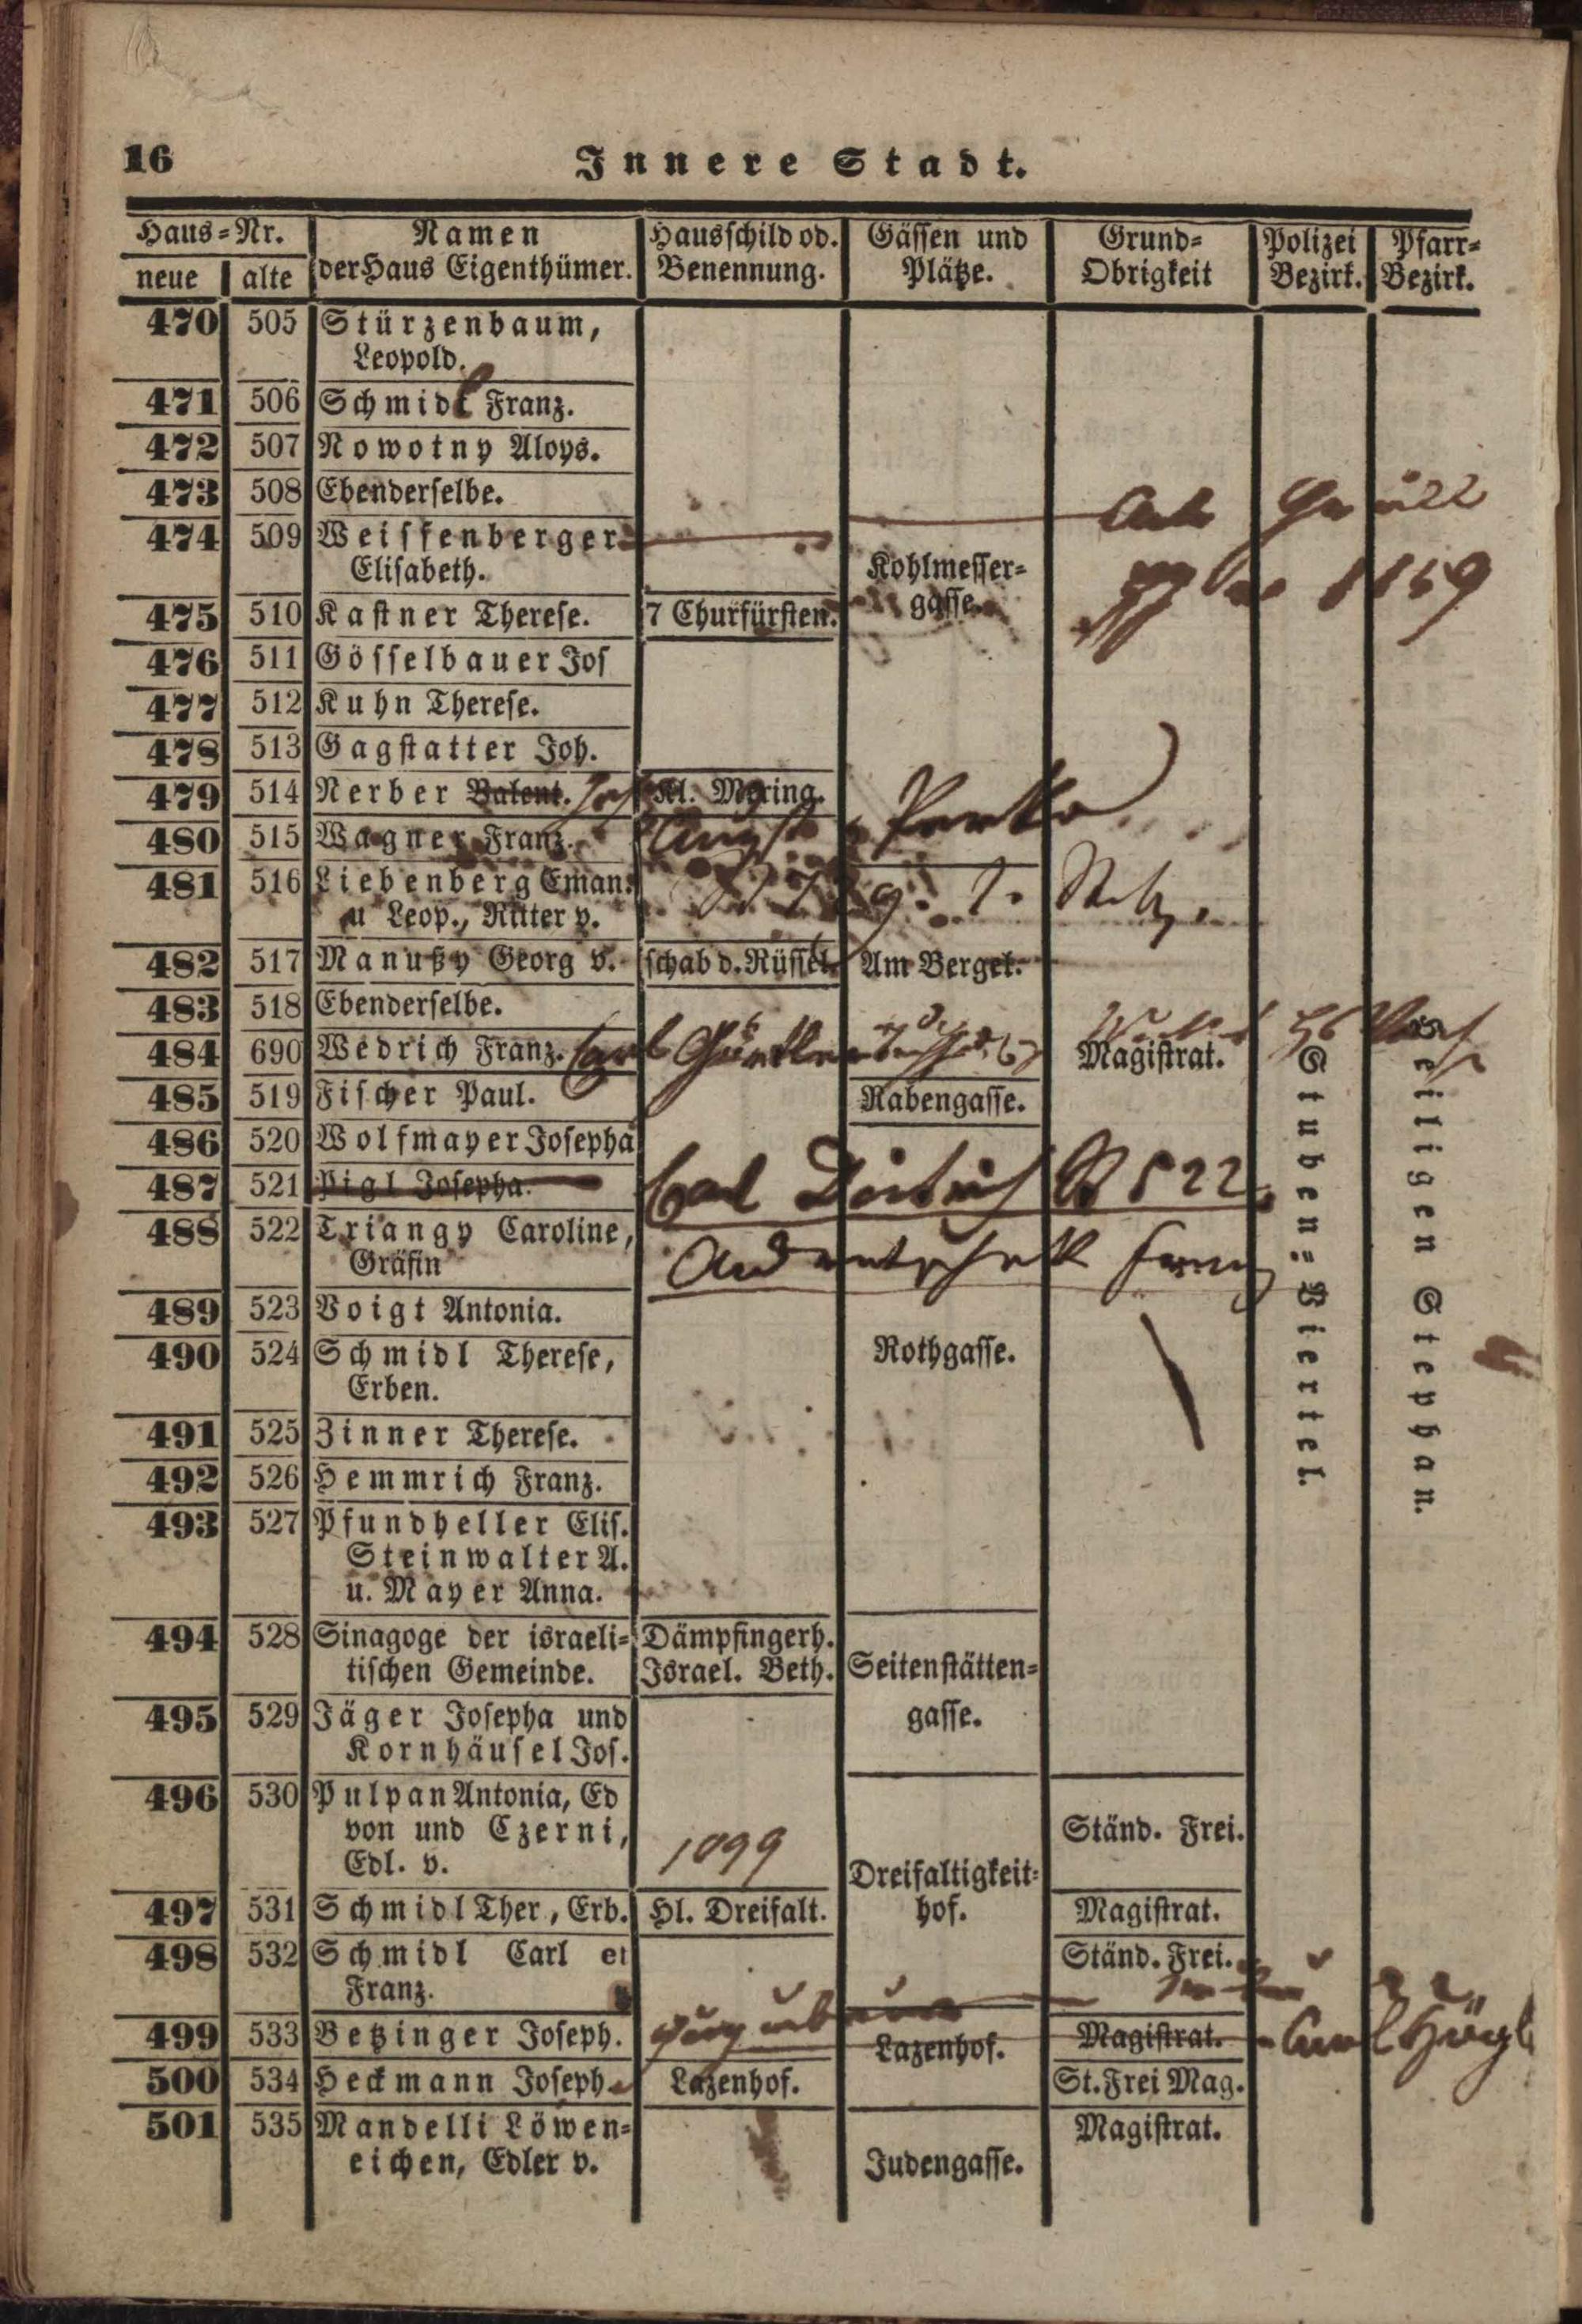 16
Innere Stadt.
Haus=Nr. Namen Hausschild od. Gässen und Grund= Polizei Pfarr=
neue alte der Haus Eigenthümer. Benennung. Plätze. Obrigkeit Bezirk. Bezirk.
470 505 Stürzenbaum,
Leopold.
471 506 Schmidl Franz.
472 507 Nowotny Aloys.
473 508 Ebenderselbe.
474 509 Weiskenberger
Elisabeth. Kohlmesser=
475 510 Kastner Therese. 7 Churfürsten. gasse. 1159
476 511 Gösselbauer Jos
477 512 Kuhn Therese.
478 513 Gagstatter Joh.
479 514 Nerber Valent. Kl. Moring.
480 515 Wagner Franz.
481 516 Liebenberg Eman.
u Leop., Ritter v.
482 517 Manußy Georg v. schab d. Rüssel. Am Berget.
483 518 Ebenderselbe.
484 690 Wedrich Franz. Carl Gürtler Magistrat.
485 519 Fischer Paul. Rabengasse.
486 520 Wolfmayer Josepha
487 521 Pigl Josepha. Carl 522
488 522 Triangy Caroline,
Gräfin
489 523 Voigt Antonia.
490 524 Schmidl Therese, Rothgasse.
Erben.
491 525 Zinner Therese.
492 526 Hemmrich Franz.
493 527 Pfundheller Elis.
Steinwalter A.
u. Mayer Anna.
494 528 Sinagoge der israeli= Dämpfingerh.
tischen Gemeinde. Israel. Beth. Seitenstätten=
495 529 Jäger Josepha und gasse.
Kornhäusel Jos.
496 530 Pulpan Antonia, Ed
von und Czerni, Ständ. Frei.
Edl. v. 1099 Dreifaltigkeit=
497 531 Schmidl Ther, Erb. Hl. Dreifalt. hof. Magistrat.
498 532 Schmidl Carl et Ständ. Frei.
Franz.
499 533 Betzinger Joseph. Lazenhof. Magistrat. Carl Högl
500 534 Heckmann Joseph. Lazenhof. St. Frei Mag.
501 535 Mandelli Löwen= Magistrat.
eichen, Edler v. Judengasse.
Stuben=Viertel.
Heiligen Stephan.